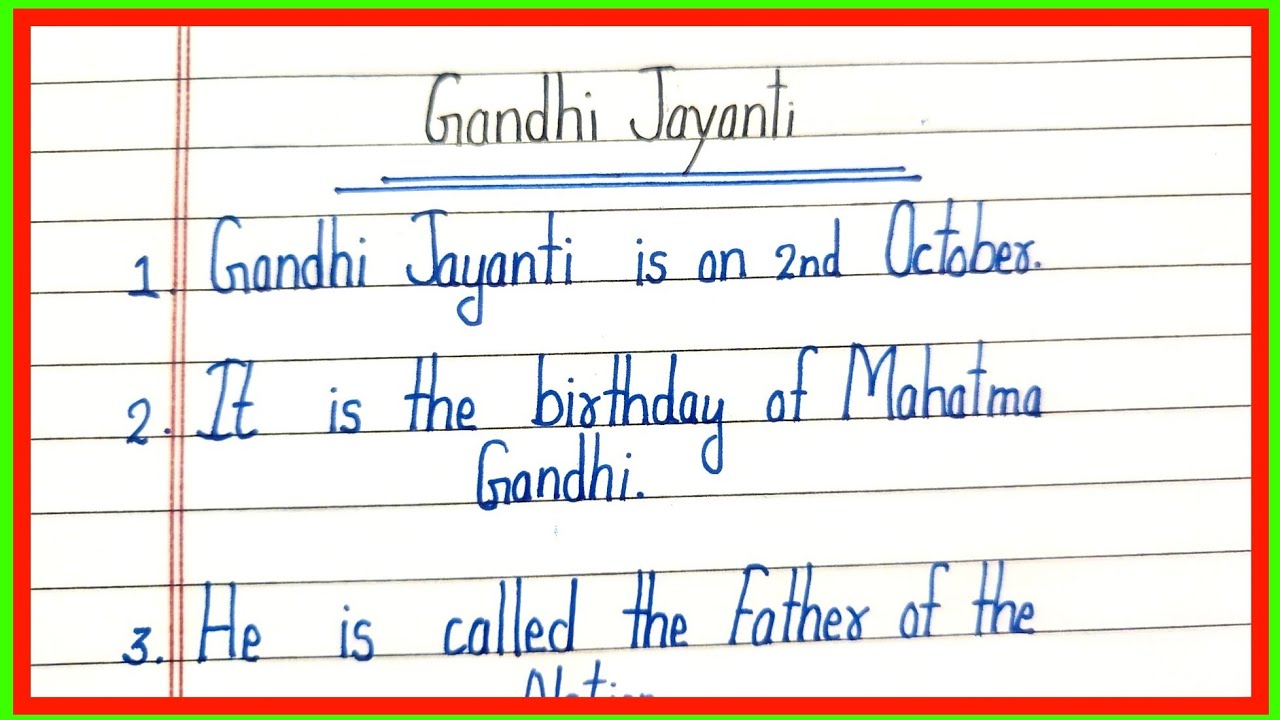 Gandhi Jayanti
1. Gandhi Jayanti is on 2nd October.
2. It is the birthday of Mahatma
Gandhi.
3. He is called the Father of the
Nation